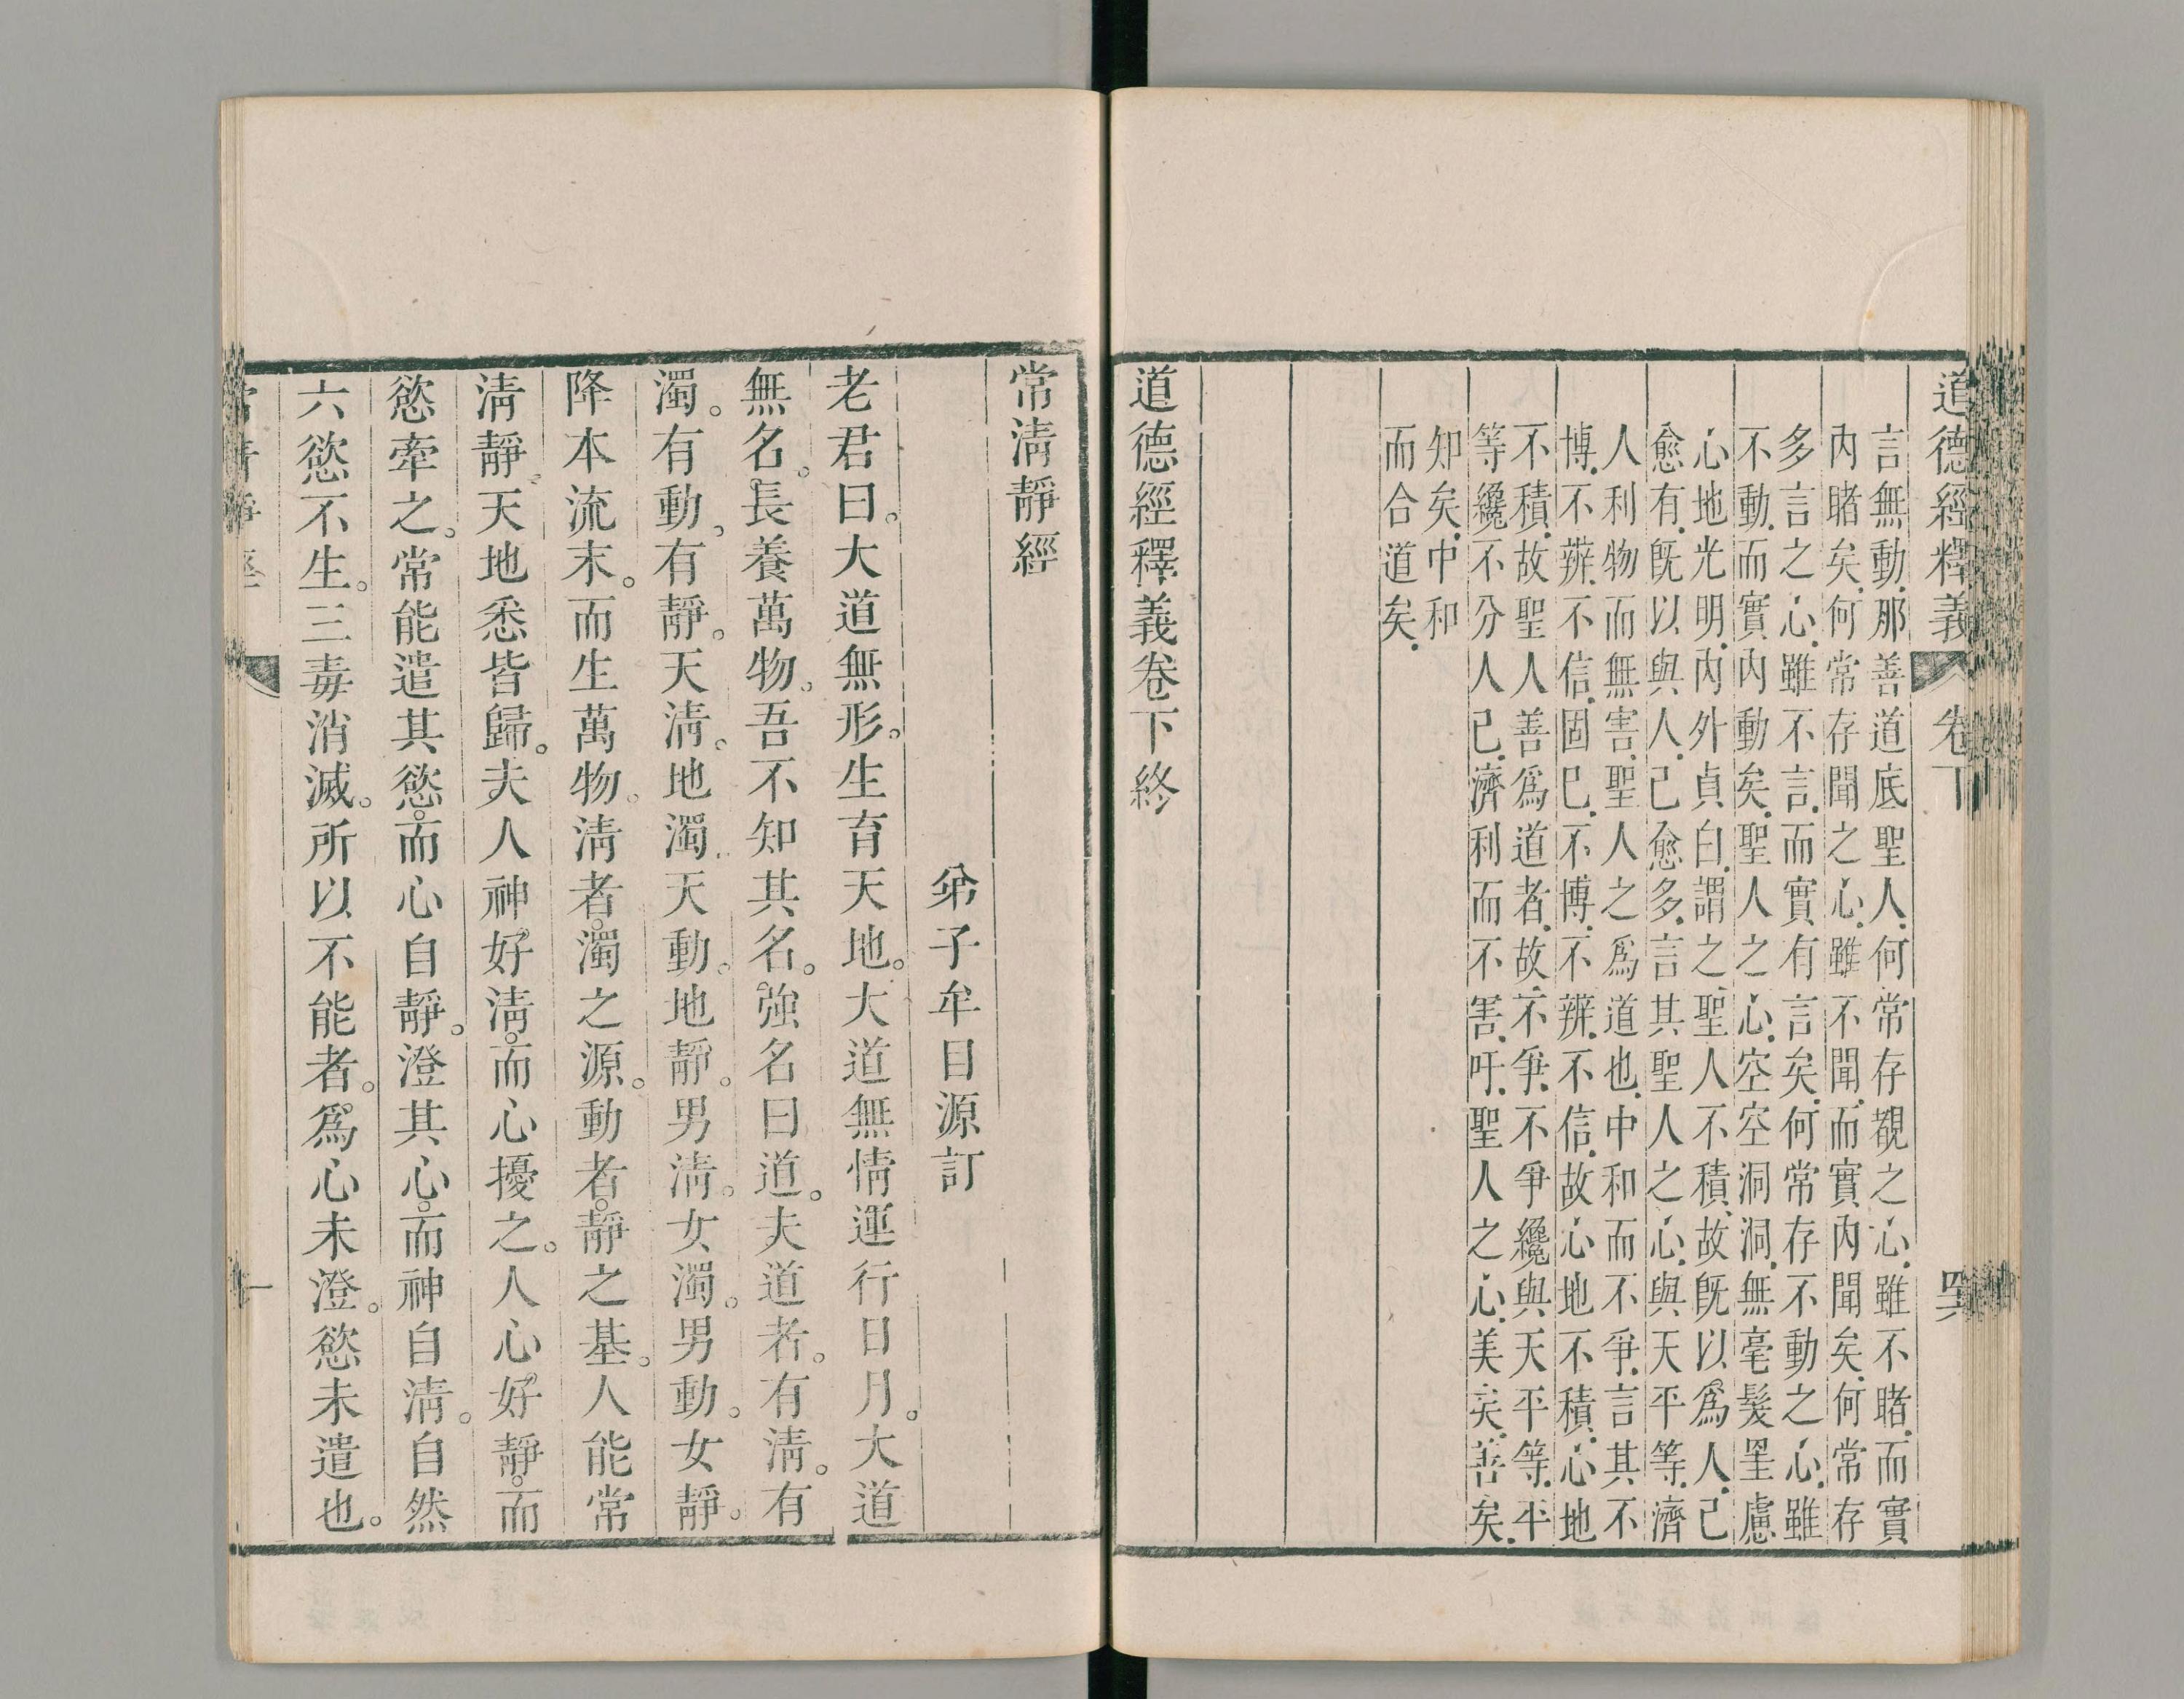 道德經釋義 卷下 四六
言無動.那善道底聖人.何常存覩之心.雖不睹.而實
內睹矣.何常存聞之心.雖不聞.而實內聞矣.何常存
多言之心.雖不言.而實有言矣.何常存不動之心.雖
不動.而實內動矣.聖人之心.空空洞洞.無毫髮罣慮
心地光明.內外貞白.謂之聖人不積.故旣以爲人.己
愈有.旣以與人.己愈多.言其聖人之心.與天平等.濟
人利物而無害.聖人之爲道也.中和而不爭.言其不
博.不辨.不信.固已.不博.不辨.不信.故心地不積.心地
不積.故聖人善爲道者.故不爭.不爭纔與天平等.平
等纔不分人己.濟利而不害.吁.聖人之心.美矣.善矣.
知矣.中和
而合道矣.
道德經釋義卷下終
常淸靜經
弟子牟目源訂
老君曰。大道無形。生育天地。大道無情運行日月。大道
無名。長養萬物。吾不知其名。強名曰道。夫道者。有淸。有
濁。有動。有靜。天淸。地濁。天動。地靜。男淸。女濁。男動。女靜。
降本流末。而生萬物。淸者。濁之源。動者。靜之基。人能常
淸靜。天地悉皆歸。夫人神。好淸。而心擾之。人心。好靜。而
慾牽之。常能遣其慾。而心自靜。澄其心。而神自淸。自然
六慾不生。三毒消滅。所以不能者。爲心未澄。慾未遣也。
常清靜經 一